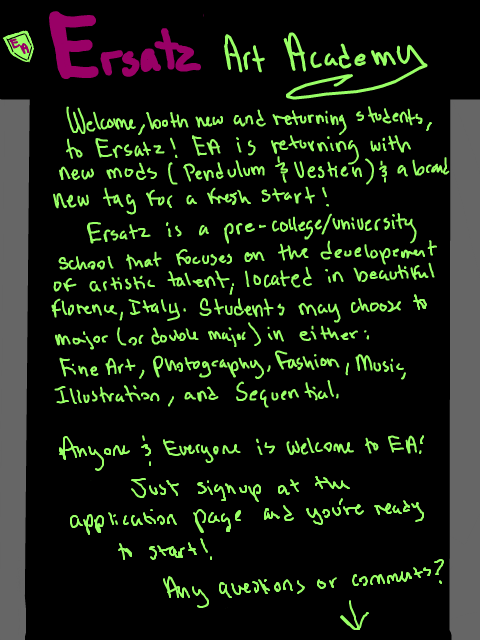 EA
Ersatz Art Academy
Welcome, both new and returning students,
to Ersatz! EA is returning with
new mods (Pendulum & Vestien) & a brand
new tag for a fresh start!
Ersatz is a pre-college/university
school that focuses on the developement
of artistic talent, located in beautiful
Florence, Italy. Students may choose to
major (or double major) in either:
Fine Art, Photography, Fashion, Music,
Illustration, and Sequential.
Anyone & Everyone is welcome to EA!
Just signup at the
application page and you're ready
to start!
Any questions or comments?